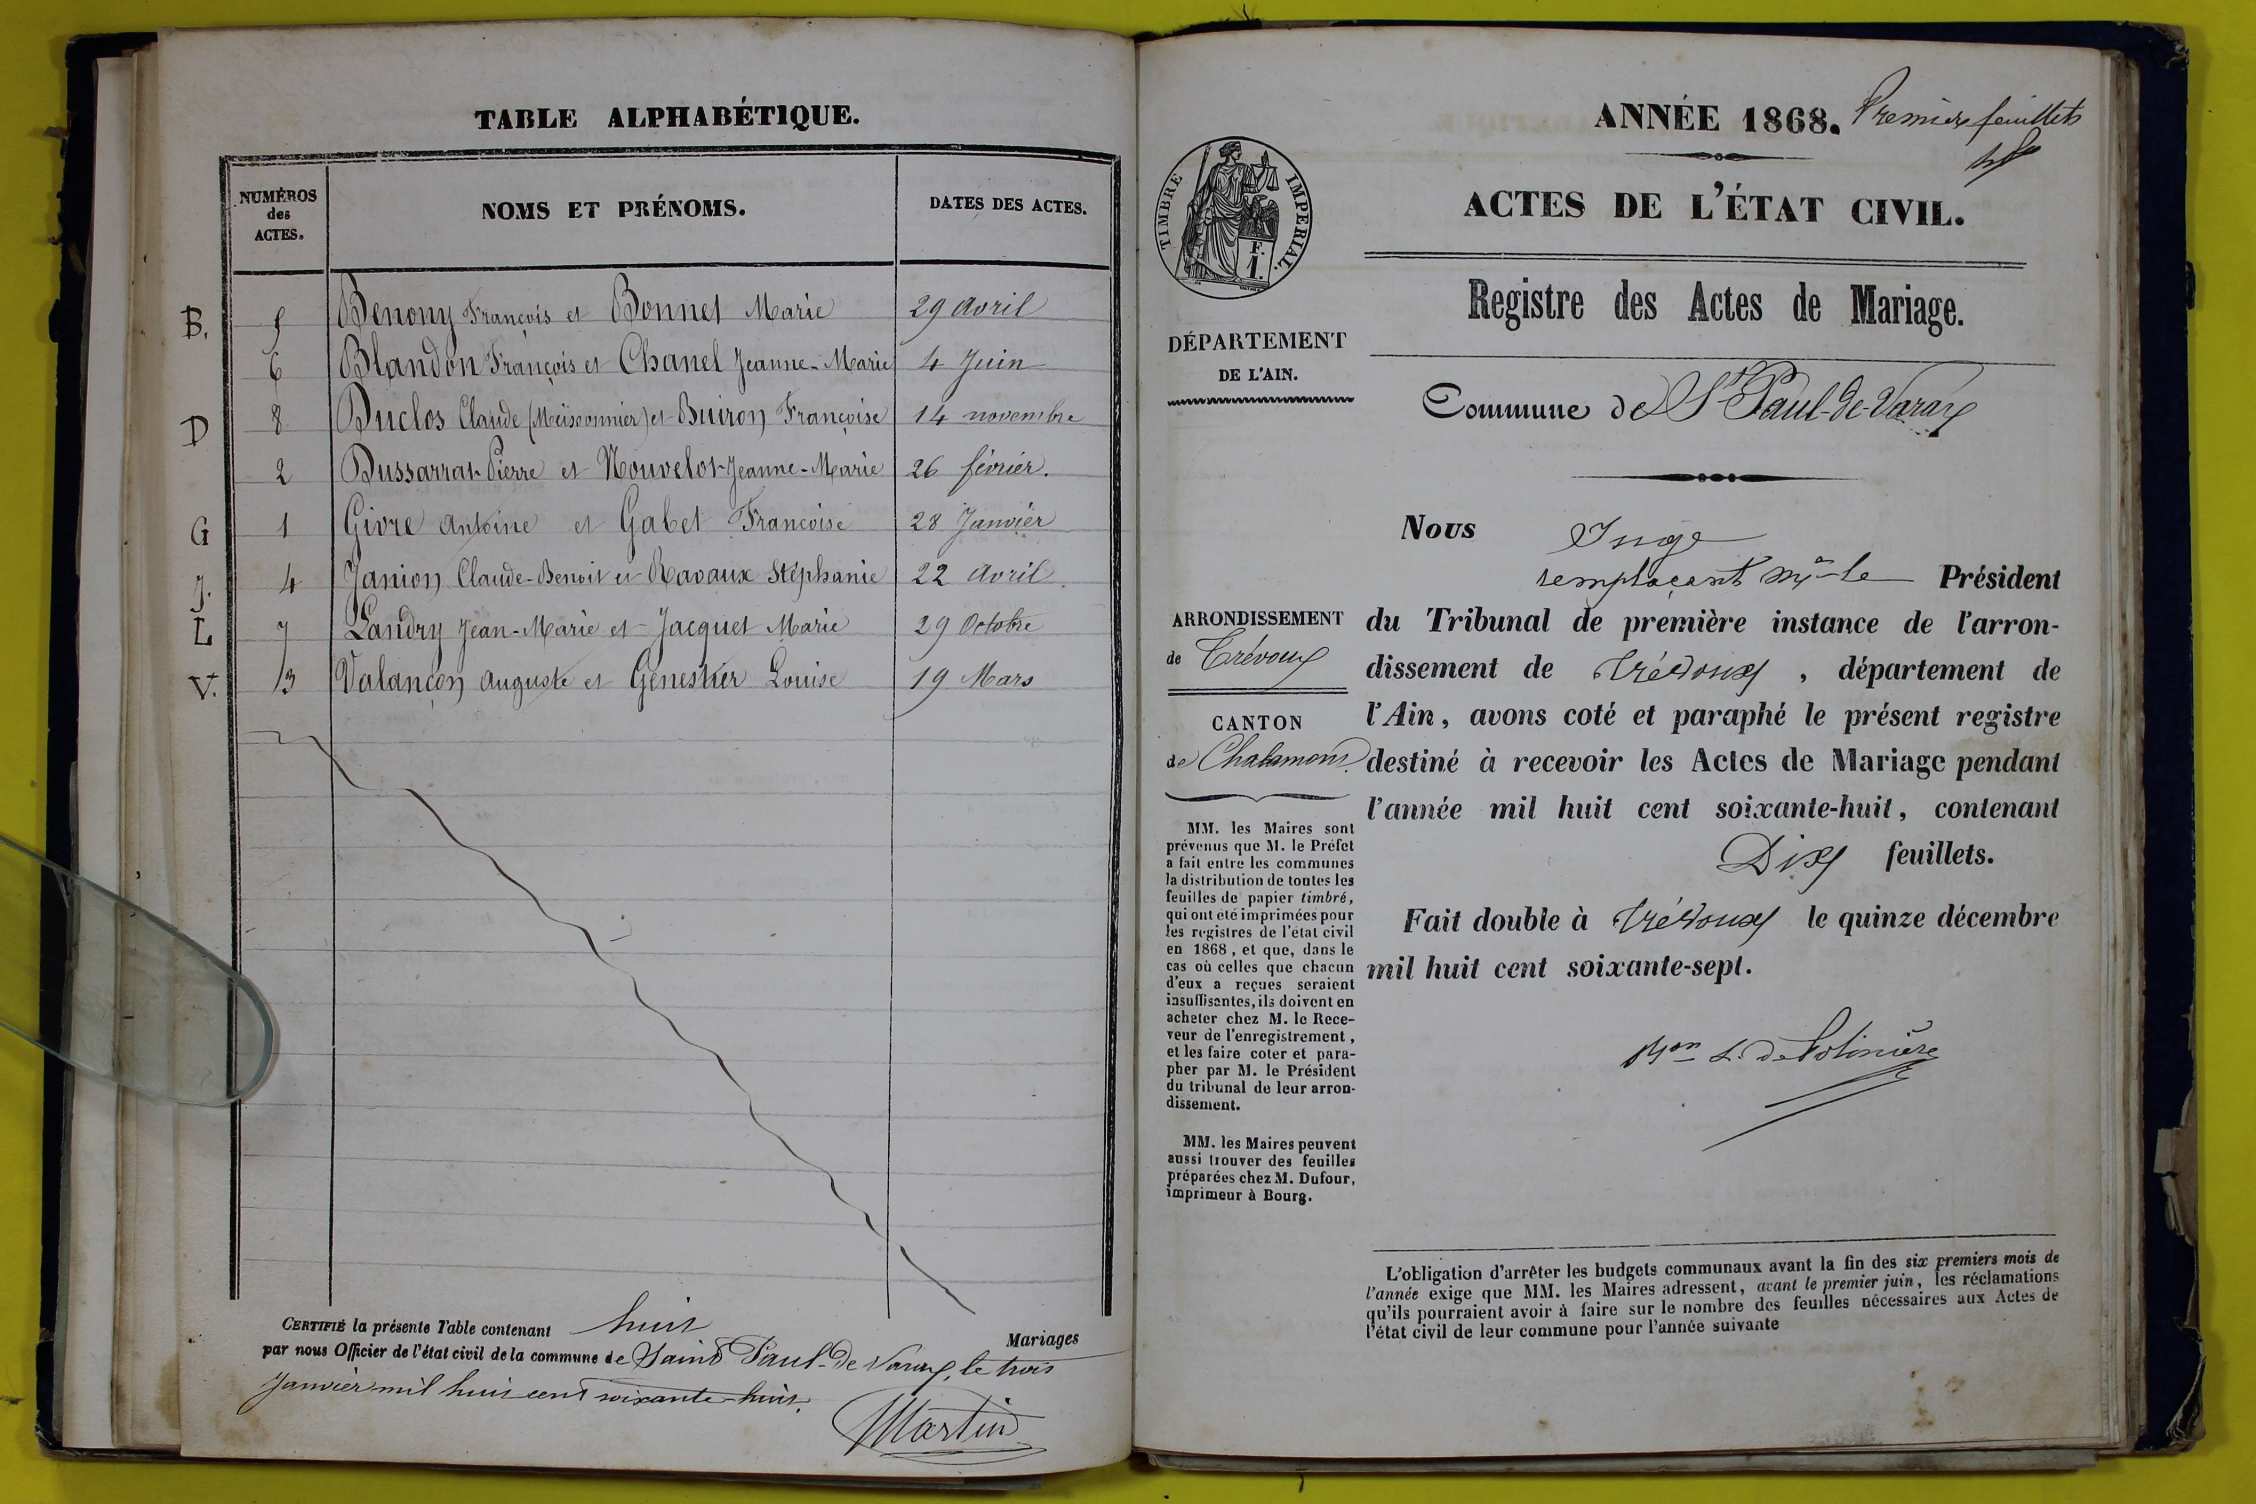 TABLE ALPHABÉTIQUE.
NUMÉROS
des
ACTES.
NOMS ET PRÉNOMS.
DATES DES ACTES.
B. 5 Benony François et Bonnet Marie 29 avril
6 Blandon François et Chanel Jeanne-Marie 4 Juin
D 8 Duclos Claude (Meissonnier) et Buiron Françoise 14 novembre
2 Dussarrat Pierre et Nouvelot Jeanne-Marie 26 février.
G 1 Givre Antoine et Gabet Francoise 28 Janvier
J. 4 Janion Claude-Benoit et Ravaux Stéphanie 22 avril
L 7 Landry Jean-Marie et Jacquet Marie 29 Octobre
V. 3 Valançon Auguste et Genestier Louise 19 Mars
CERTIFIÉ la présente Table contenant huit Mariages
par nous Officier de l'état civil de la commune de Saint Paul-de Varax, le trois
Janvier mil huit cent soixante-huit.
Martin
ANNÉE 1868. Premier feuillets
ACTES DE L'ÉTAT CIVIL.
TIMBRE IMPERIAL.
F.
1.
Registre des Actes de Mariage.
DÉPARTEMENT
DE L'AIN.
Commune de St Paul-de-Varax
Nous Juge
remplaçant Mr le Président
du Tribunal de première instance de l'arron-
dissement de Trévoux, département de
l'Ain, avons coté et paraphé le présent registre
destiné à recevoir les Actes de Mariage pendant
l'année mil huit cent soixante-huit, contenant
Dix feuillets.
Fait double à Trévoux le quinze décembre
mil huit cent soixante-sept.
ARRONDISSEMENT
de Trévoux
CANTON
de Chalamont
MM. les Maires sont
prévenus que M. le Préfet
a fait entre les communes
la distribution de toutes les
feuilles de papier timbré,
qui ont été imprimées pour
les registres de l'état civil
en 1868, et que, dans le
cas où celles que chacun
d'eux a reçues seraient
insuffisantes, ils doivent en
acheter chez M. le Rece-
veur de l'enregistrement,
et les faire coter et para-
pher par M. le Président
du tribunal de leur arron-
dissement.
MM. les Maires peuvent
aussi trouver des feuilles
préparées chez M. Dufour,
imprimeur à Bourg.
L'obligation d'arrêter les budgets communaux avant la fin des six premiers mois de
l'année exige que MM. les Maires adressent, avant le premier juin, les réclamations
qu'ils pourraient avoir à faire sur le nombre des feuilles nécessaires aux Actes de
l'état civil de leur commune pour l'année suivante